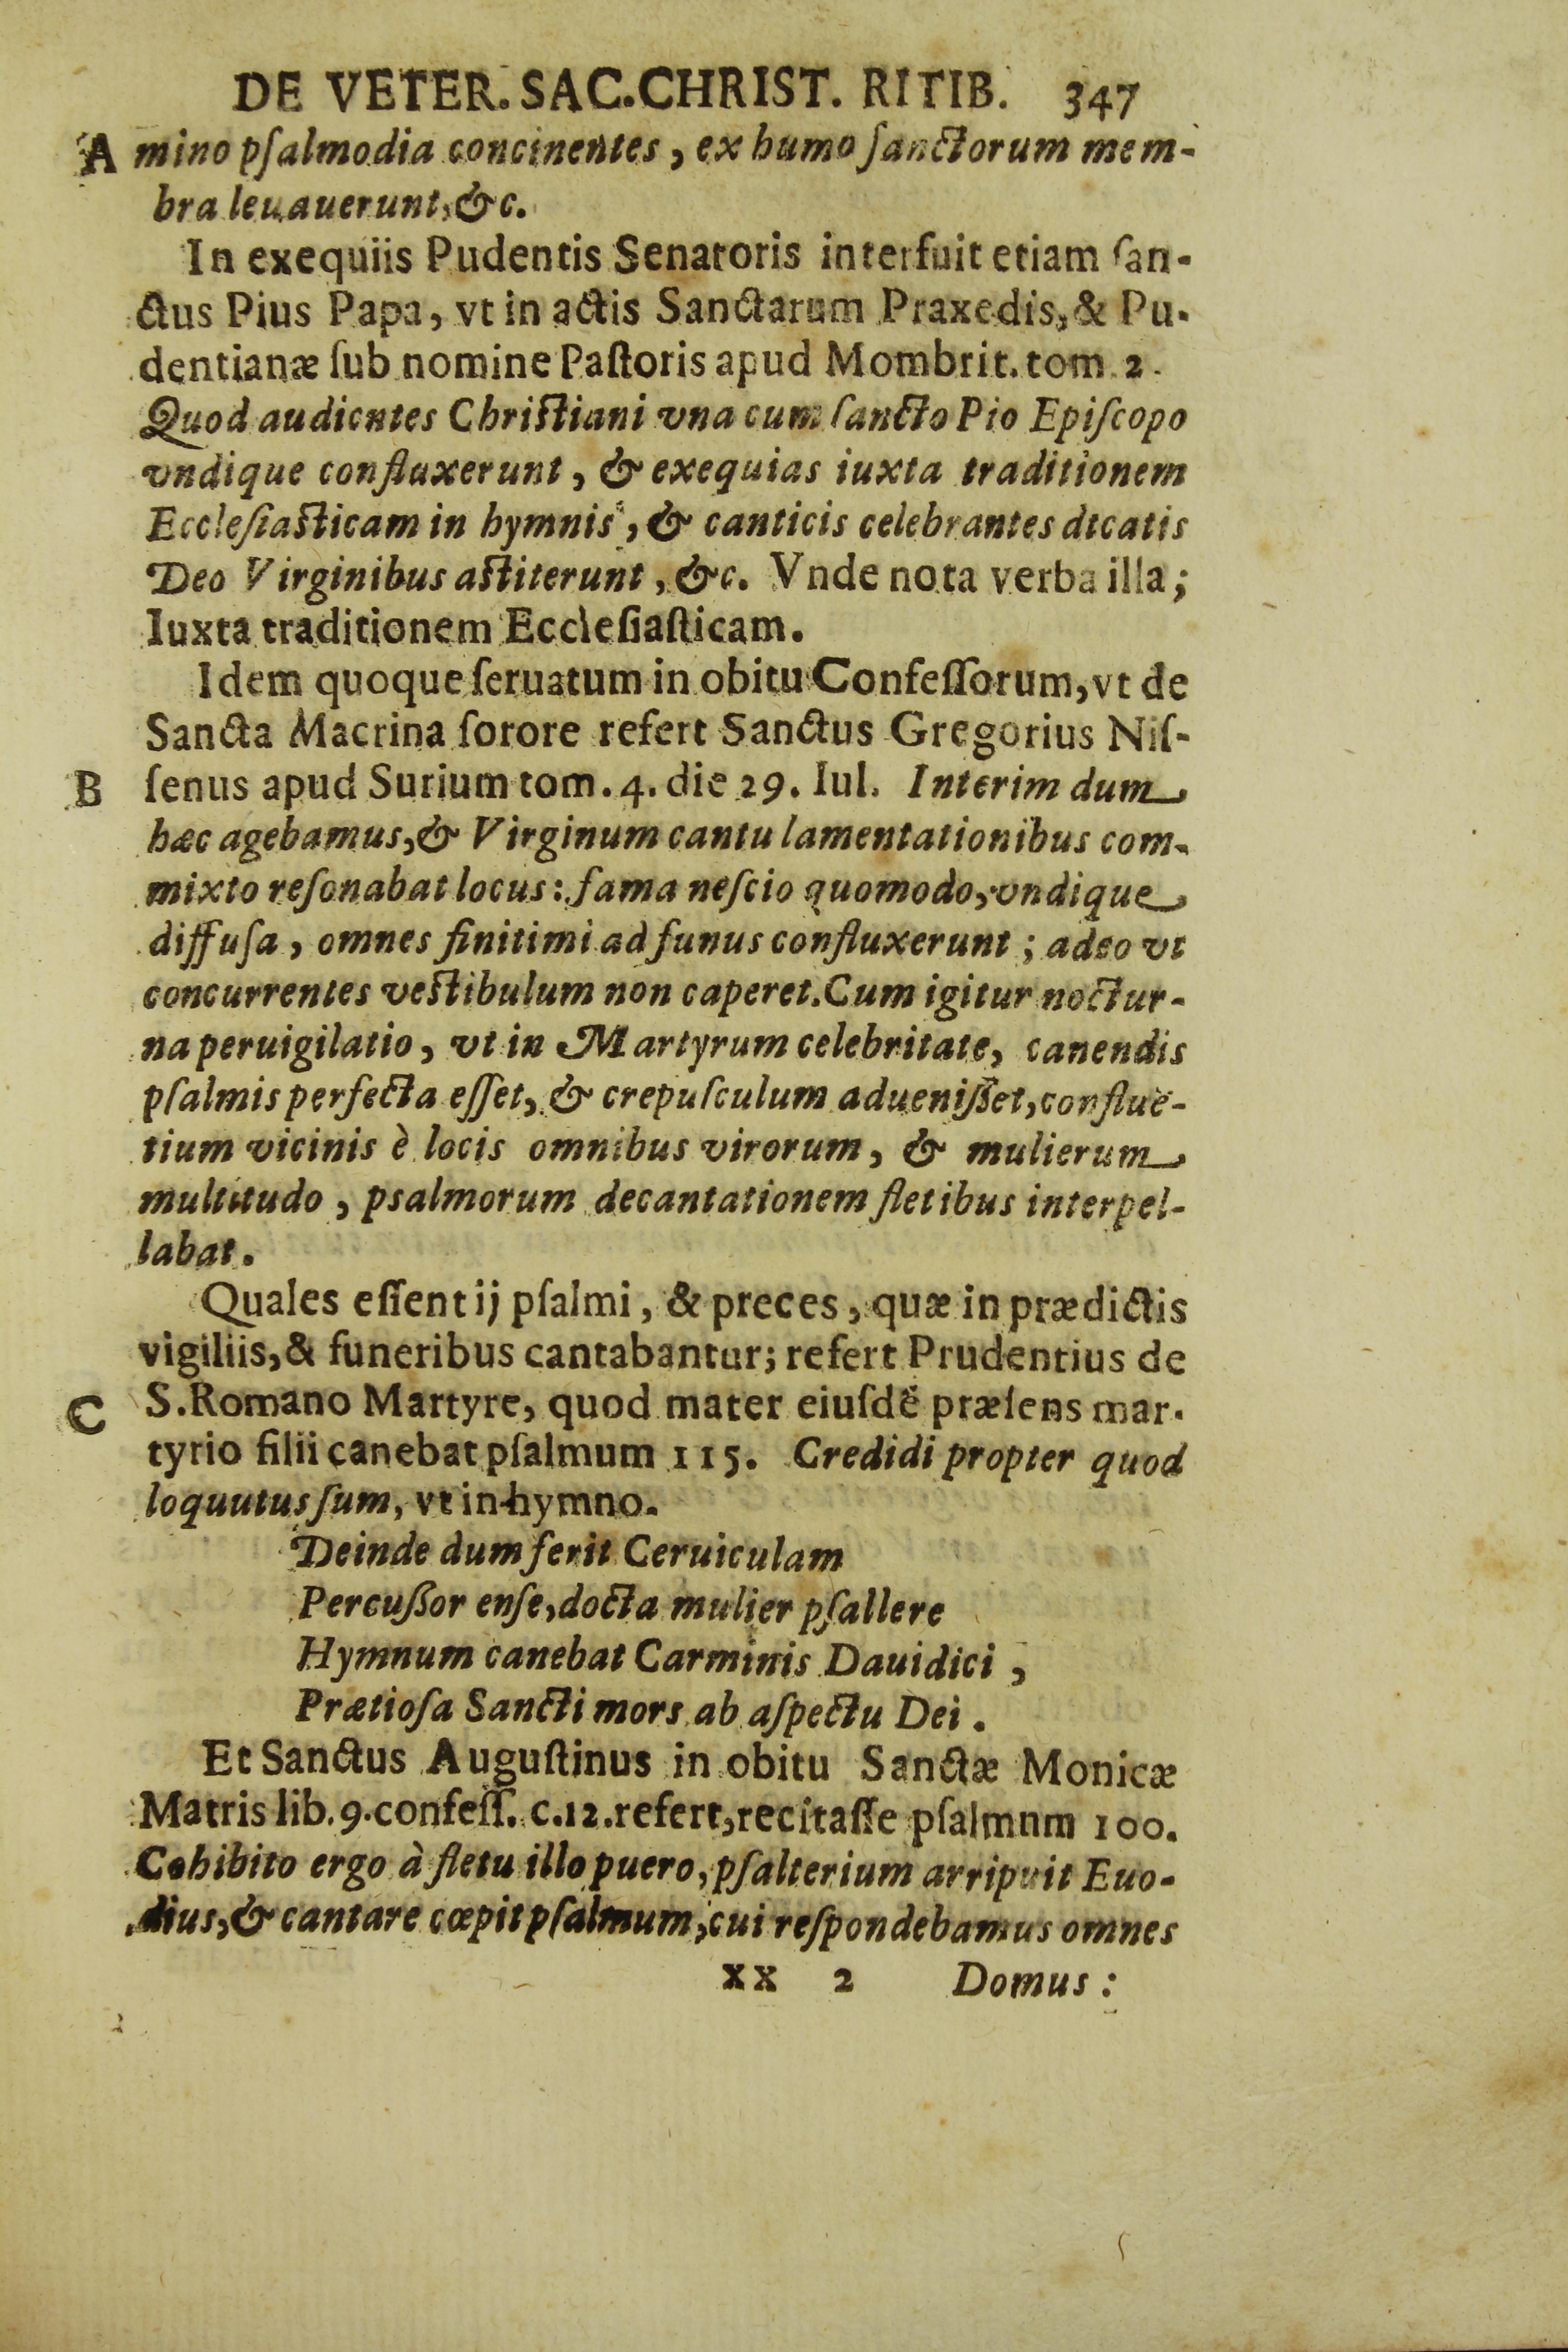 DE VETER. SAC. CHRIST. RITIB. 347
A mino pſalmodia concinentes, ex humo ſanctorum mem-
bra leuauerunt, &c.
In exequiis Pudentis Senatoris interfuit etiam ſan-
ctus Pius Papa, vt in actis Sanctarum Praxedis, & Pu-
dentianæ ſub nomine Paſtoris apud Mombrit. tom. 2.
Quod audientes Chriſtiani vna cum ſancto Pio Epiſcopo
vndique confluxerunt, & exequias iuxta traditionem
Eccleſiaſticam in hymnis, & canticis celebrantes dicatis
Deo Virginibus aſtiterunt, &c. Vnde nota verba illa;
Iuxta traditionem Eccleſiaſticam.
Idem quoque ſeruatum in obitu Confeſſorum, vt de
Sancta Macrina ſorore refert Sanctus Gregorius Niſ-
B ſenus apud Surium tom. 4. die 29. Iul. Interim dum
hæc agebamus, & Virginum cantu lamentationibus com-
mixto reſonabat locus: fama neſcio quomodo, vndique
diffuſa, omnes finitimi ad funus confluxerunt; adeo vt
concurrentes veſtibulum non caperet. Cum igitur noctur-
na peruigilatio, vt in Martyrum celebritate, canendis
pſalmis perfecta eſſet, & crepuſculum adueniſſet, confluē-
tium vicinis è locis omnibus virorum, & mulierum
multitudo, psalmorum decantationem fletibus interpel-
labat.
Quales eſſent ij pſalmi, & preces, quæ in prædictis
vigiliis, & funeribus cantabantur; refert Prudentius de
C S. Romano Martyre, quod mater eiuſdē præſens mar-
tyrio filii canebat pſalmum 115. Credidi propter quod
loquutus ſum, vt in hymno.
Deinde dum ferit Ceruiculam
Percuſſor enſe, docta mulier pſallere
Hymnum canebat Carminis Dauidici,
Prætioſa Sancti mors ab aſpectu Dei.
Et Sanctus Auguſtinus in obitu Sanctæ Monicæ
Matris lib. 9. confeſſ. c. 12. refert, recitaſſe pſalmum 100.
Cohibito ergo à fletu illo puero, pſalterium arripuit Euo-
dius, & cantare cœpit pſalmum, cui reſpondebamus omnes
XX 2 Domus: